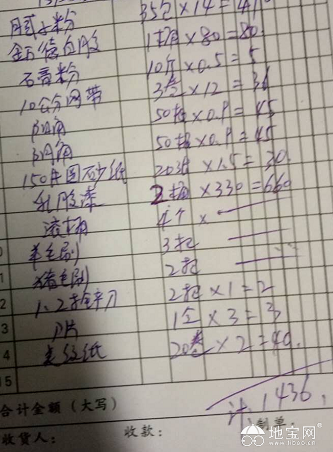 腻子粉 35包×14=4
白胶 1桶×80=80.
石膏粉 10斤×0.5=5
10公分网带 3卷×12=36
阳角 50根×0.9=45
阴角 50根×0.9=45
150#砂纸 20张×1.5=30.
乳胶漆 2桶×330=660
滚桶 4个×
羊毛刷 3把
猪毛刷 2把
2把×1=2
刀片 1盒×3=3
美纹纸 20卷×2=40.
15
合计金额（大写） 计1436.
收货人： 收款： 制单：
地宝网